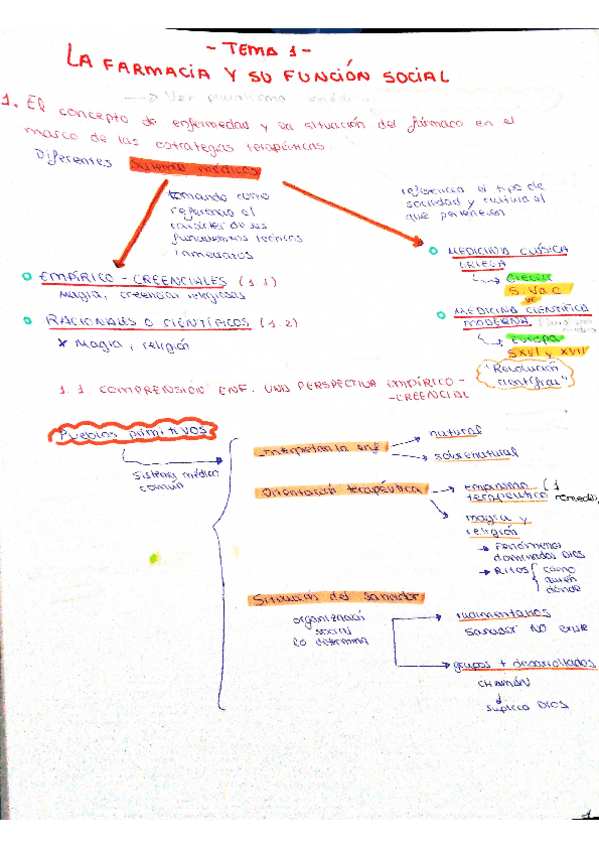 - TEMA 1 -
LA FARMACIA Y SU FUNCIÓN SOCIAL
→ Ver pluralismo médico
1. El concepto de enfermedad y su situación del fármaco en el
marco de las estrategias terapéuticas.
Diferentes sistemas médicos
tomando como
referencia el
carácter de sus
fundamentos técnicos
inmediatos
referencia el tipo de
sociedad y cultura al
que pertenecen
EMPÍRICO - CREENCIALES (1.1)
Magia, creencias religiosas
RACIONALES O CIENTÍFICOS (1.2)
x Magia, religión
MEDICINA CLÁSICA
GRIEGA
→ Grecia
S. V a C
MEDICINA CIENTÍFICA
MODERNA
→ Europa
SXVI y XVII
"Revolución
científica"
1.1 COMPRENSIÓN ENF. UNA PERSPECTIVA EMPÍRICO -
-CREENCIAL
Pueblos primitivos
sistema médico
común
Interpretan la enf.
→ natural
→ sobrenatural
Orientación terapéutica
→ empirismo
terapéutico
→ magia y
religión
→ Fenómenos
dominados DIOS
→ Ritos { cómo
quién
dónde
Situación del sanador
organización
social
lo determina
→ rudimentarios
sanador NO existe
→ grupos + desarrollados
CHAMÁN
↓
suplica DIOS
1